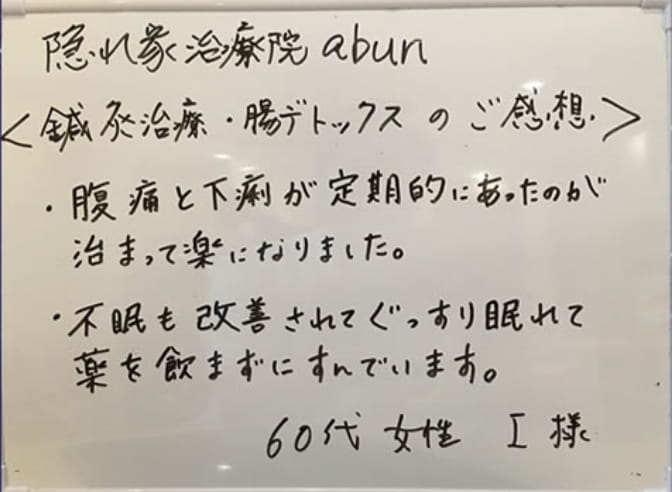 隠れ家治療院 abun
<鍼灸治療・腸デトックスのご感想>
・腹痛と下痢が定期的にあったのが
治まって楽になりました。
・不眠も改善されてぐっすり眠れて
薬を飲まずにすんでいます。
60代 女性 I 様